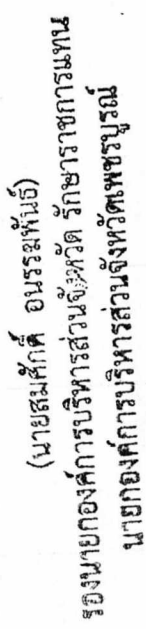 (นายสมศักดิ์ อนรรฆพันธ์)
รองนายกองค์การบริหารส่วนจังหวัด รักษาราชการแทน
นายกองค์การบริหารส่วนจังหวัดเพชรบูรณ์